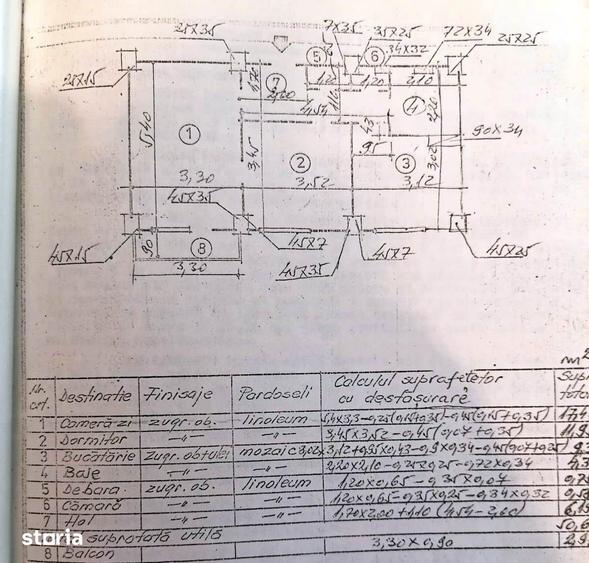 25x35
7x35
35x25
34x32
72x34
25x25
25x15
5
6
1,20
1,20
2,10
1,70
7
2,00
1,10
4,54
4
2,20
5,40
1
43
90x34
3,45
2
95
3
3,02
3,30
3,52
3,12
45x35
45x15
90
8
45x7
45x35
45x7
45x25
3,30
m²
Nr. crt. Destinatie Finisaje Pardoseli Calculul suprafetelor cu desfasurare
1 Camera zi zugr. ob. linoleum 5,4x3,3-0,25(0,15+0,35)-0,45(0,15+0,35) 17,4
2 Dormitor -"- -"- 3,45x3,52-0,45(0,07+0,35) 11,9
3 Bucătărie zugr. obtulei mozaic 3,02x3,12+0,95x0,43-0,9x0,34-0,45(0,07+0,25)
4 Baie -"- -"- 2,20x2,10-0,25x0,25-0,72x0,34
5 Debara zugr. ob. linoleum 1,20x0,65-0,35x0,07
6 Cămară -"- -"- 1,20x0,65-0,35x0,25-0,34x0,32
7 Hol -"- -"- 1,70x2,00+1,10(4,54-2,00)
suprafată utilă 50,6
8 Balcon 3,30x0,90 2,9
storia